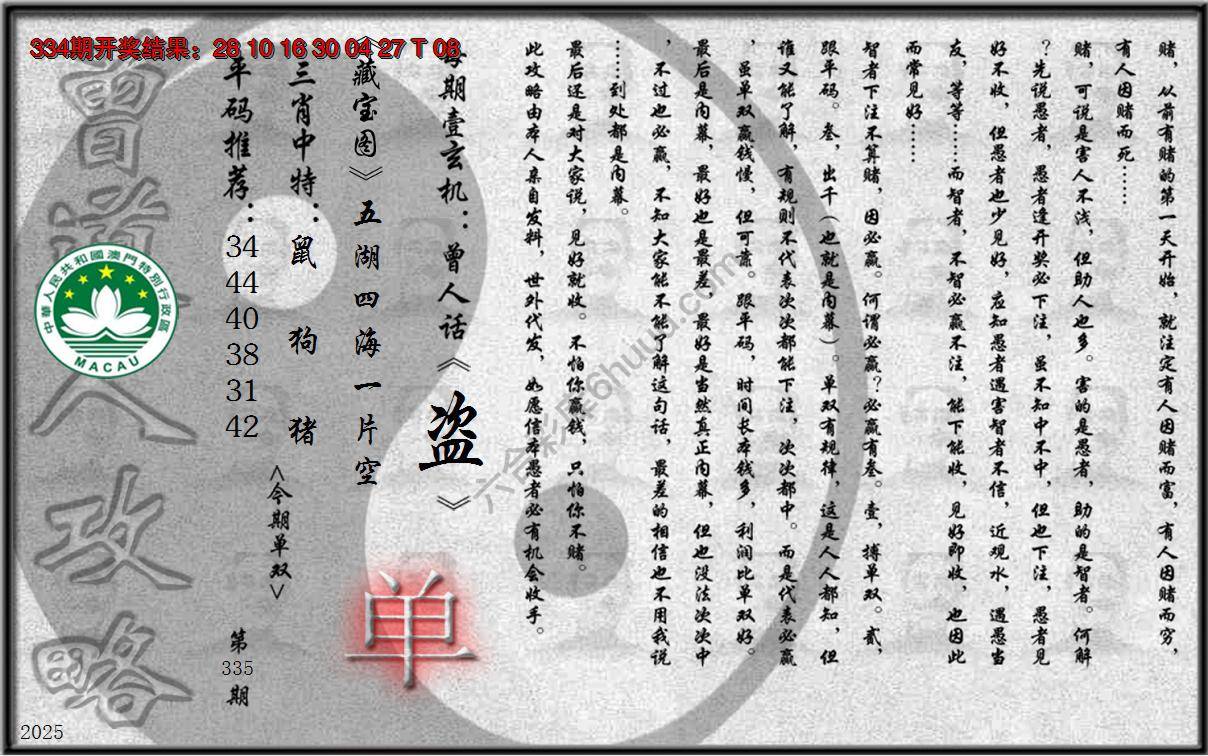 334期开奖结果：28 10 16 30 04 27 T 08
赌，从前有赌的第一天开始，就注定有人因赌而富，有人因赌而穷，
有人因赌而死……
赌，可说是害人不浅，但助人也多。害的是愚者，助的是智者。何解
？先说愚者，愚者逢开奖必下注，虽不知中不中，但也下注，愚者见
好不收，但愚者也少见好，应知愚者遇害智者不信，近观水，遇愚当
友，等等……而智者，不智必赢不注，能下能收，见好即收，也因此
而常见好……
智者下注不算赌，因必赢。何谓必赢？必赢有叁。壹，搏单双。贰，
跟平码。叁，出千（也就是内幕）。单双有规律，这是人人都知，但
谁又能了解，有规则不代表次次都能下注，次次都中。而是代表必赢
，虽单双赢钱慢，但可靠。跟平码，时间长本钱多，利润比单双好。
最后是内幕，最好也是最差，最好是当然真正内幕，但也没法次次中
，不过也必赢，不知大家能不能了解这句话，最差的相信也不用我说
……到处都是内幕。
最后还是对大家说，见好就收。不怕你赢钱，只怕你不赌。
此攻略由本人亲自发料，世外代发，如愿信本愚者必有机会收手。
每期壹玄机：曾人话《盗》
《藏宝图》五湖四海一片空
三肖中特：鼠 狗 猪
平码推荐：34 44 40 38 31 42
<今期单双>
单
第335期
曾道人攻略
中華人民共和國澳門特別行政區
MACAU
六合彩库6huuu.com
2025